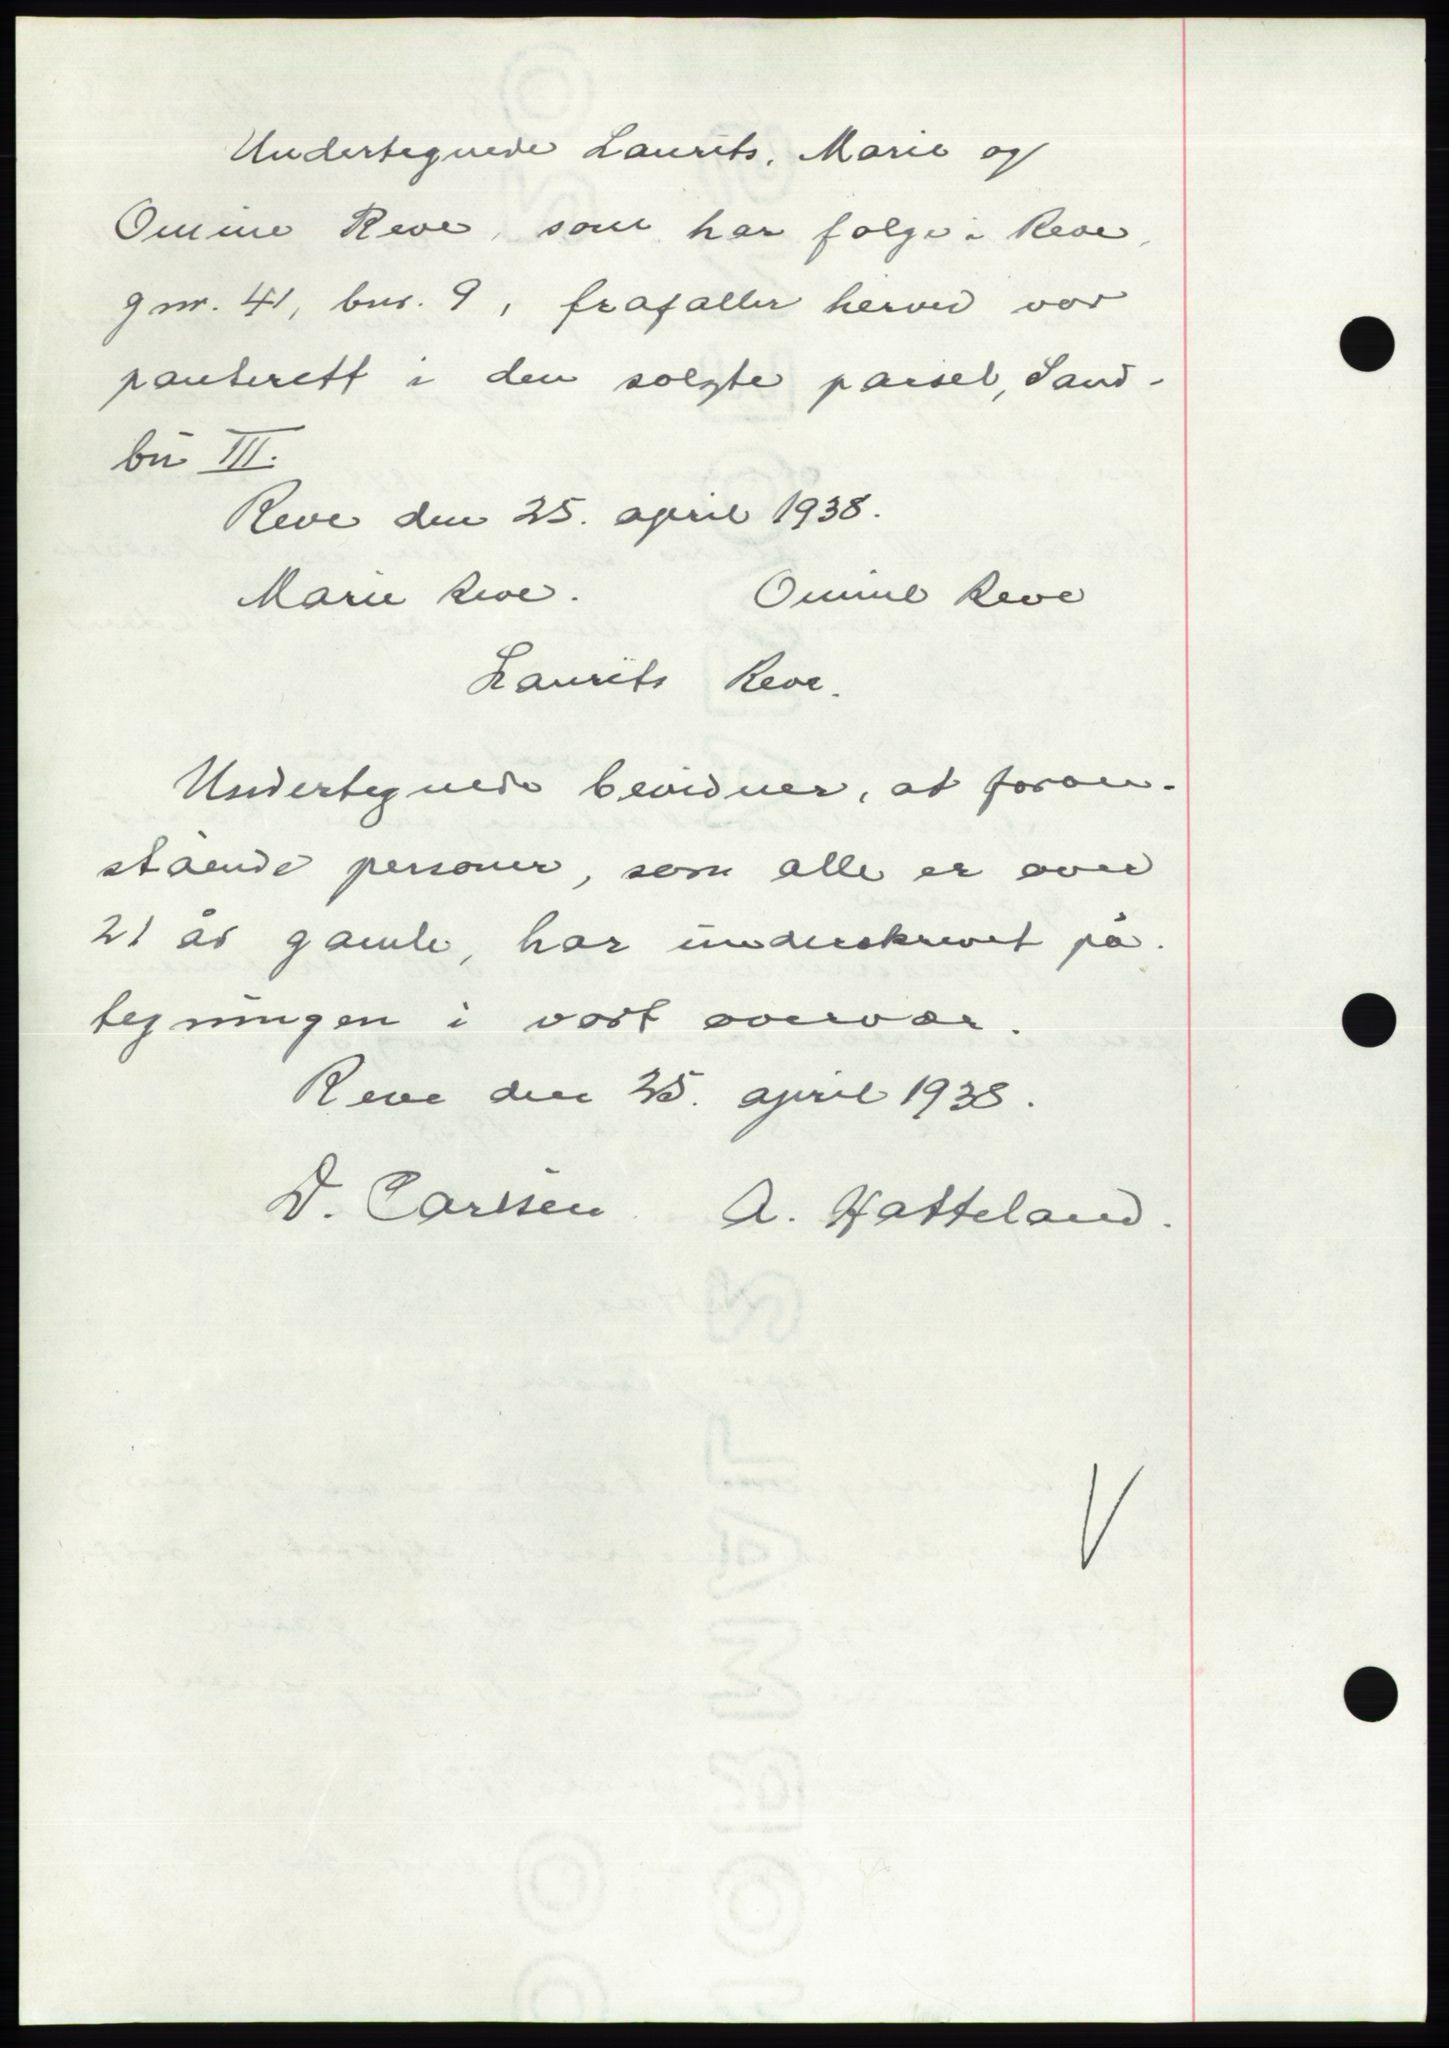 Undertegnede Laurits, Marie og
Omine Reve, som har følge i Reve,
gnr. 41, bnr. 9, frafaller herved vor
panterett i den solgte parsel, Sand-
bu III.
Reve den 25. april 1938.
Marie Reve. Omine Reve
Laurits Reve.
Undertegnede bevidner, at foran-
stående personer, som alle er over
21 år gamle, har underskrevet på-
tegningen i vort overvær.
Reve den 25. april 1938.
D. Carlsen A. Hatteland.
V